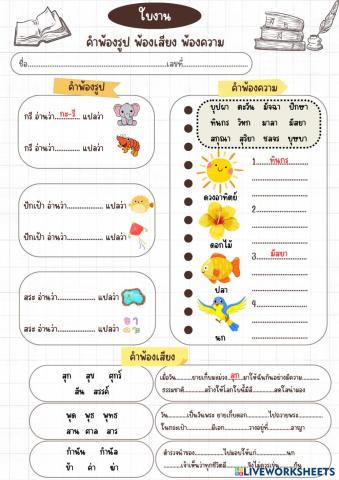 ใบงาน
คำพ้องรูป พ้องเสียง พ้องความ
ชื่อ......................................................เลขที่.........................
คำพ้องรูป
กรี อ่านว่า...กะ-รี... แปลว่า
กรี อ่านว่า............... แปลว่า
ปักเป้า อ่านว่า............... แปลว่า
ปักเป้า อ่านว่า............... แปลว่า
สระ อ่านว่า............... แปลว่า
สระ อ่านว่า............... แปลว่า
คำพ้องความ
บุปผา ตะวัน มัจฉา ปักษา
ทินกร วิหก มาลา มัสยา
สกุณา สุริยา ชลจร บุษบา
ดวงอาทิตย์
ดอกไม้
ปลา
นก
1.....ทินกร.....
2...............
3...............
มัสยา
4...............
คำพ้องเสียง
สุก สุข ศุกร์
สัน สรรค์
เมื่อวัน..........ยายเก็บมะม่วง..สุก..มาให้ฉันกินอย่างมีความ..........
ธรรมชาติ..........สร้างให้โลกใบนี้มีสี..........สดใสน่ามอง
พุด พุธ พุทธ
สาน ศาล สาร
วัน..........เป็นวันพระ ยายเก็บดอก..........ไปถวายพระ..........
ในกระเป๋า..........มีเอก..........วางอยู่ที่..........อาญา
กำนัน กำนัล
ข้า ค่า ฆ่า
ตำรวจนำของ..........ไปมอบให้แก่..........
..........เจ้าเห็นว่าทุกชีวิตมี..........จึงไม่ควร..........กัน
LIVEWORKSHEETS